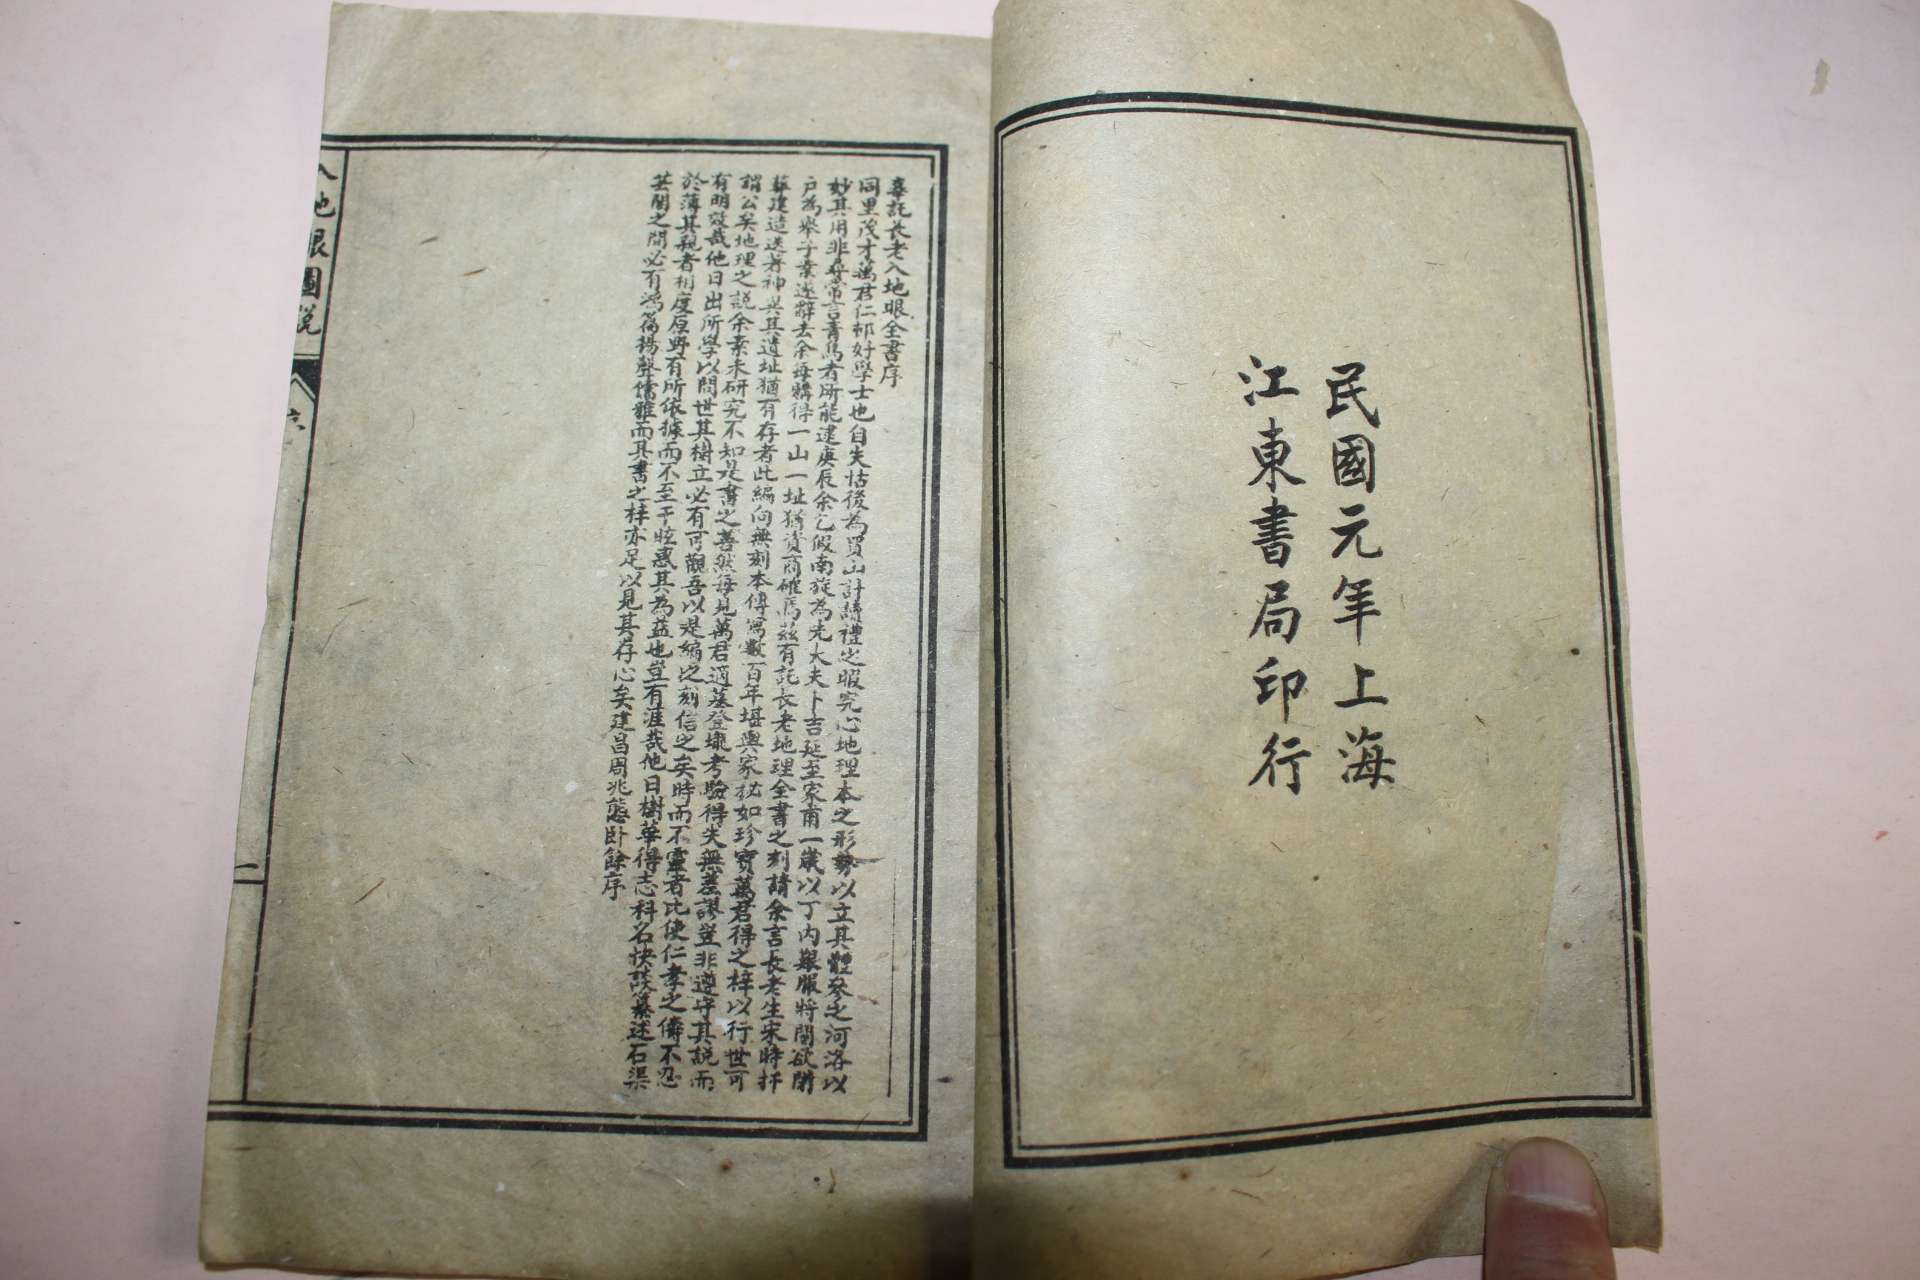 民國元年上海
江東書局印行
辜託長老入地眼全書序
同里茂才萬君仁邨好學士也自失怙後為買山計讀禮之暇究心地理本之形勢以立其體參之河洛以
妙其用非尋常言青烏者所能逮庚辰余乞假南旋為先大夫卜吉延至家甫一歲以丁內艱服將闋欲閉
戶為舉子業遂辭去余每購得一山一址猶資商確焉茲有託長老地理全書之刻請余言長老生宋時扞
葬建造迭著神異其遺址猶有存者此編向無刻本傳寫數百年堪輿家秘如珍寶萬君得之梓以行世可
謂公矣地理之說余素未研究不知是書之善然每見萬君適墓登壠考驗得失無差謬豈非遵守其說而
有明效哉他日出所學以問世其樹立必有可觀吾以是編之刻信之矣時而不靈者比使仁孝之儔不忍
於薄其親者相度原野有所依據而不至干眩惑其為益也豈有涯哉他日樹華得志科名快談纂述石渠
芸閣之間必有鴻篇揚聲儒雅而其書之梓亦足以見其存心矣建昌周兆熊臥餘序
入地眼圖說
序
一